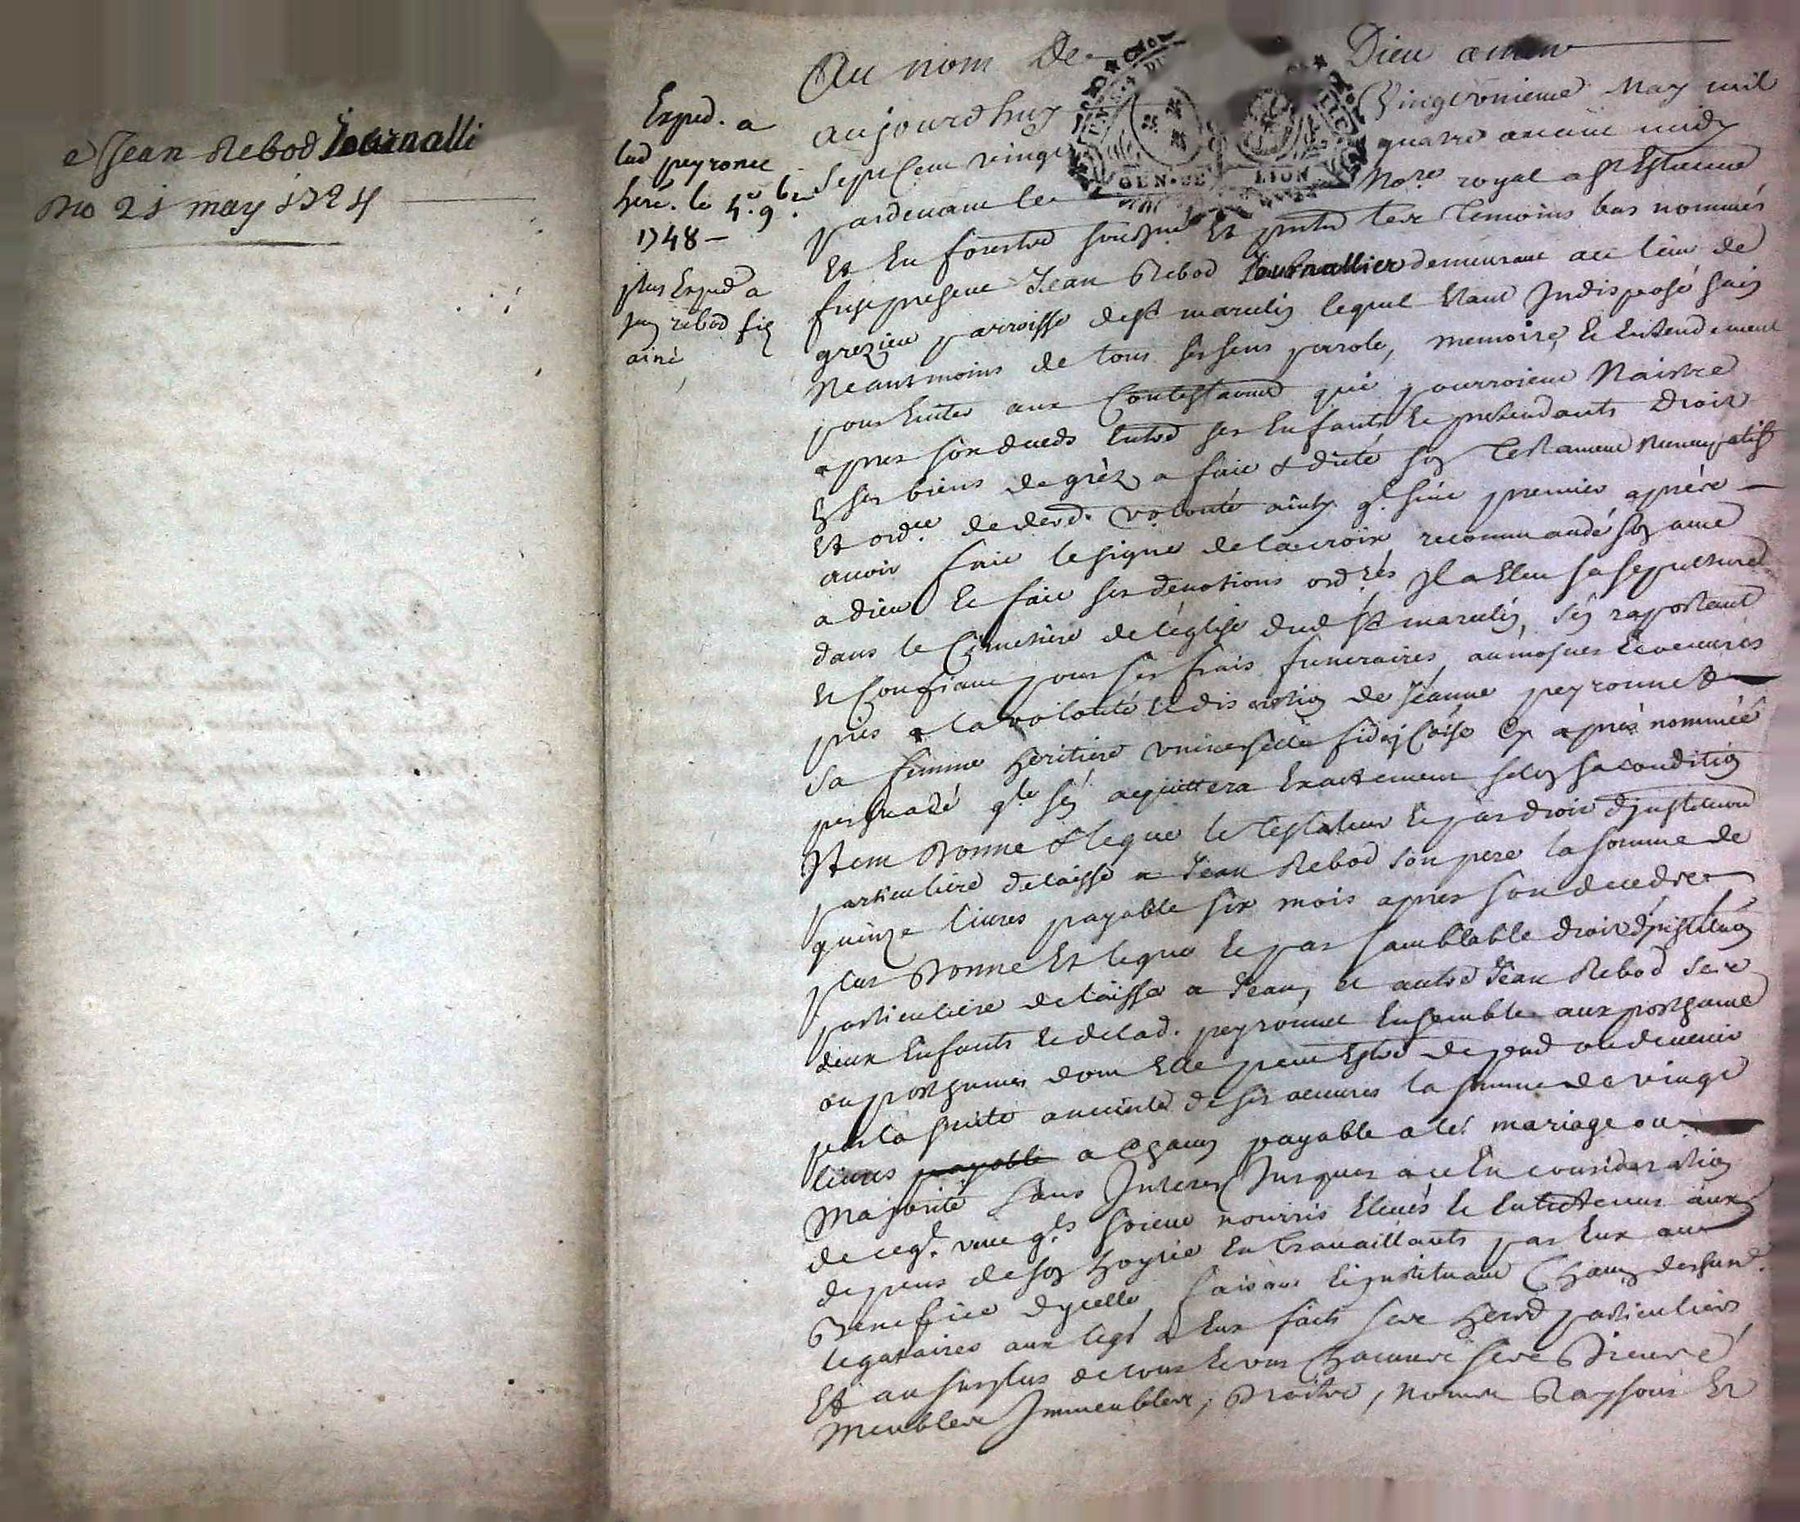 e Jean Rebod Journalli
Du 21 may 1724
Exped. a
lad peyronee
heri. le 4.e 9.bre
1748 —
plus Exped a
Jean rebod fiz
ainé
Au nom De Dieu amen
aujourdhuy Vingtunieme May mil
Sept Cent vingt quatre avant midy
pardevant le No.re royal a St Estienne
Et En forestz soubzné Et puntz les temoins bas nommés
fust present Jean Rebod Journallier demeurant au lieu de
grezieu parroisse de St marcelin lequel Etant Indisposé sain
Neantmoins de tous ses sens parole, memoire, Et Entendement
pour Eviter aux Contestations qui pourroient Naistre
apres son deceds Entre ses Enfants Et pretendants droit
En ses biens de gréz a fait & dicté son testament nuncupatif
Et ord.re de dern.re volonté ainsy q. suit premier aprés
avoir fait le signe de la croix recommandé son ame
a dieu Et fait ses devotions ord.res Il a Eleu sa sepulture
dans le Cimetiere de l'église dud St marcelin, s'en raportant
Et Confiant pour ses frais funeraires, aumosnes Et oeuvres
pies a la volonté Et discretion de Jeanne peyronnet
sa femme heritiere universelle fideicōise cy aprés nommée
persuadé q.le s'en aquittera Exactement selon sa condition
Item Donne & legue le testateur Et par droit d'institution
particuliere delaisse a Jean Rebod son pere la somme de
quinze livres payable six mois apres son decedz
plus Donne Et legue Et par samblable droit d'institution
particuliere delaisse a Jean, Et autre Jean Rebod ses
deux Enfants Et de lad. peyronnet Ensemble aux posthume
ou posthumes dont Elle peut Estre de pnd ou devenir
par la suitte anceinte de ses oeuvres la somme de vingt
livres payable a chacun payable a leur mariage ou
Majorité sans Interest Jusques a ce En consideration
de ce q. veut q.ls soient nourris Elevés Et Entretenus aux
depens de son hoyrie En travaillants par Eux au
Benefice d'ycelle faisant Et instituant Chacun desdits
legataires aux legs a Eux faits ses herers particuliers
Et au surplus de tous Et uns Chacuns ses Biens
Meubles Immeubles, Droits, noms Raysons Et